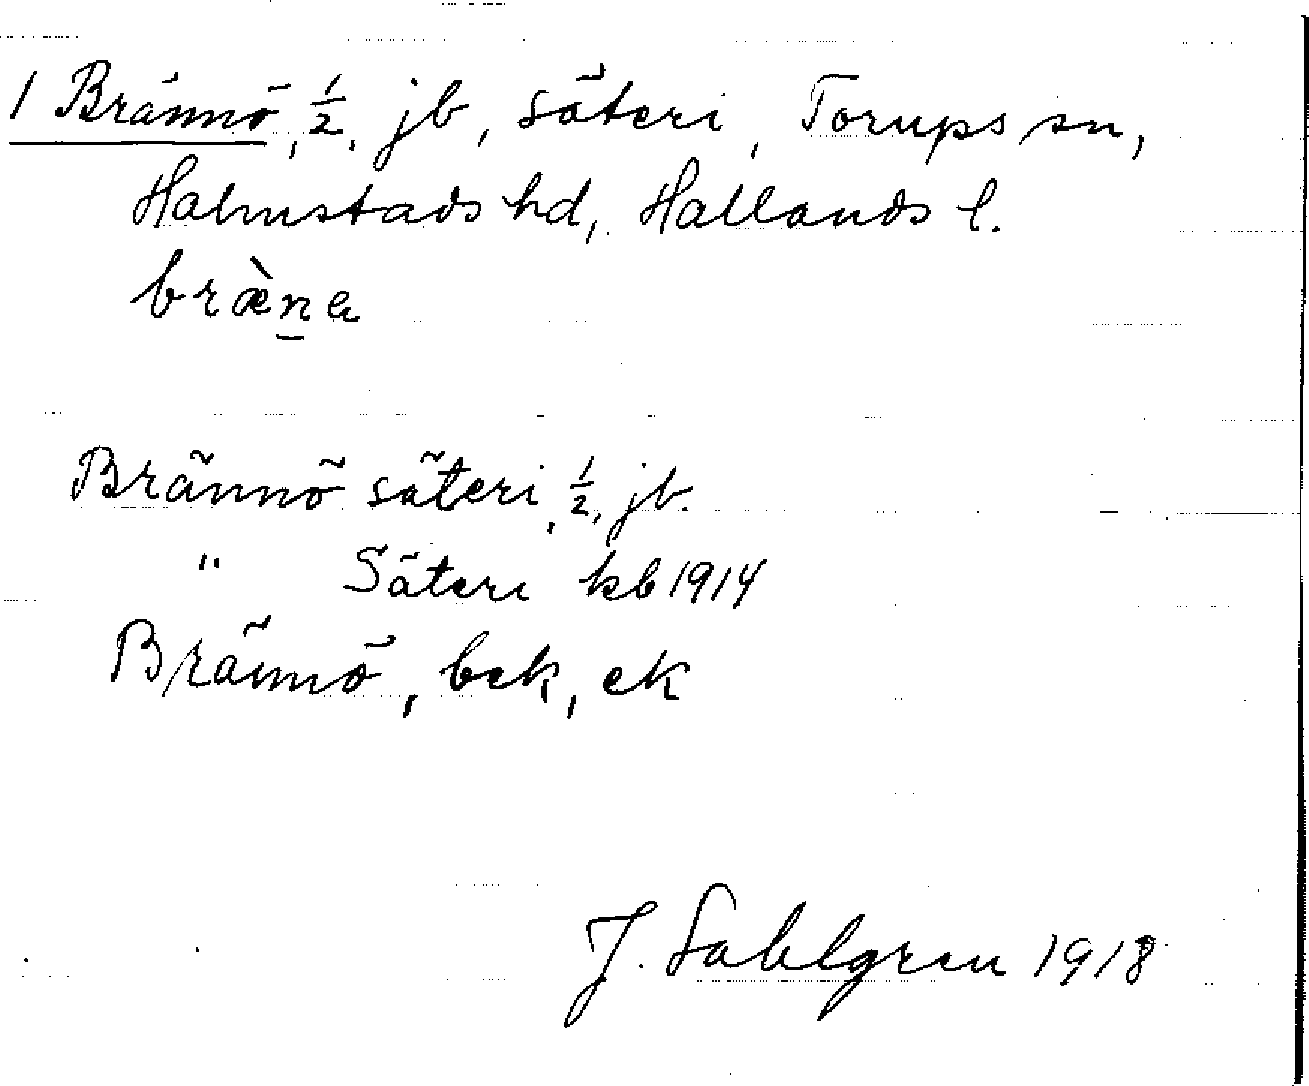 1 Brännö, ½, jb, säteri, Torups sn,
Halmstads hd, Hallands l.
bræ̀n̲a
Brännö säteri, ½, jb.
" Säteri kb 1914
Brännö, bek, ek
J. Sahlgren 1918